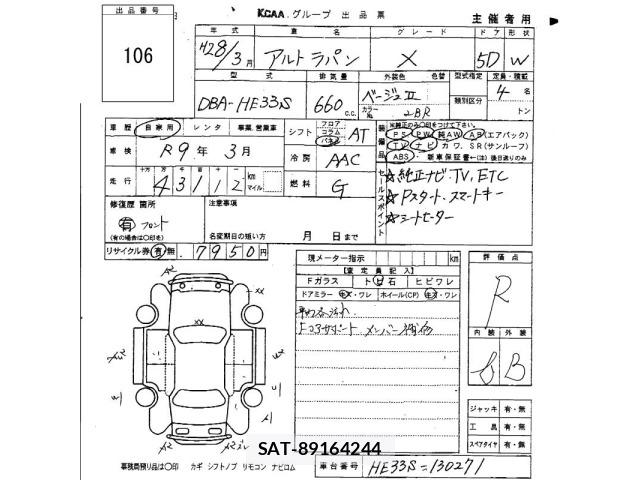 出品番号
106
KCAA.グループ 出品票
主催者用
年式 車名 グレード ドア 形状
H28/3月 アルトラパン X 5D W
型式 排気量 外装色 色替 型式指定 定員・積載
DBA-HE33S 660 C.C. ベージュII カラーNo. 2BR 類別区分 4名 トン
車歴 自家用 レンタ 事業.営業車
シフト フロア コラム パネル AT
装備品 ※純正のみ〇印をつけて下さい。
PS PW 純AW AB(エアバック)
TV ナビ カワ. SR(サンルーフ)
ABS 新車保証書←(注)後日送りのみ
車検 R9年3月
冷房 AAC
走行 十万 万 千 百 十 一 43112 km マイル
燃料 G
セールスポイント
☆純正ナビ.TV,ETC
☆Pスタート.スマートキー
☆シートヒーター
修復歴 箇所
有 フロント
(有の場合は〇印を)
注意事項
名変期日の短い方 月 日まで
リサイクル券 有・無. 7950円
現メーター指示 km
【査定員記入】
Fガラス トビ石 ヒビワレ
ドアミラー キズ・ワレ ホイール(CP) キズ・ワレ
コアサポート メンバー
評価点
R
内装 外装
B
ジャッキ 有・無
工具 有・無
スペアタイヤ 有・無
A2
xx
xx
A2
SAT-89164244
事務局預り品は〇印 カギ シフトノブ リモコン ナビロム
車台番号 HE33S-130271